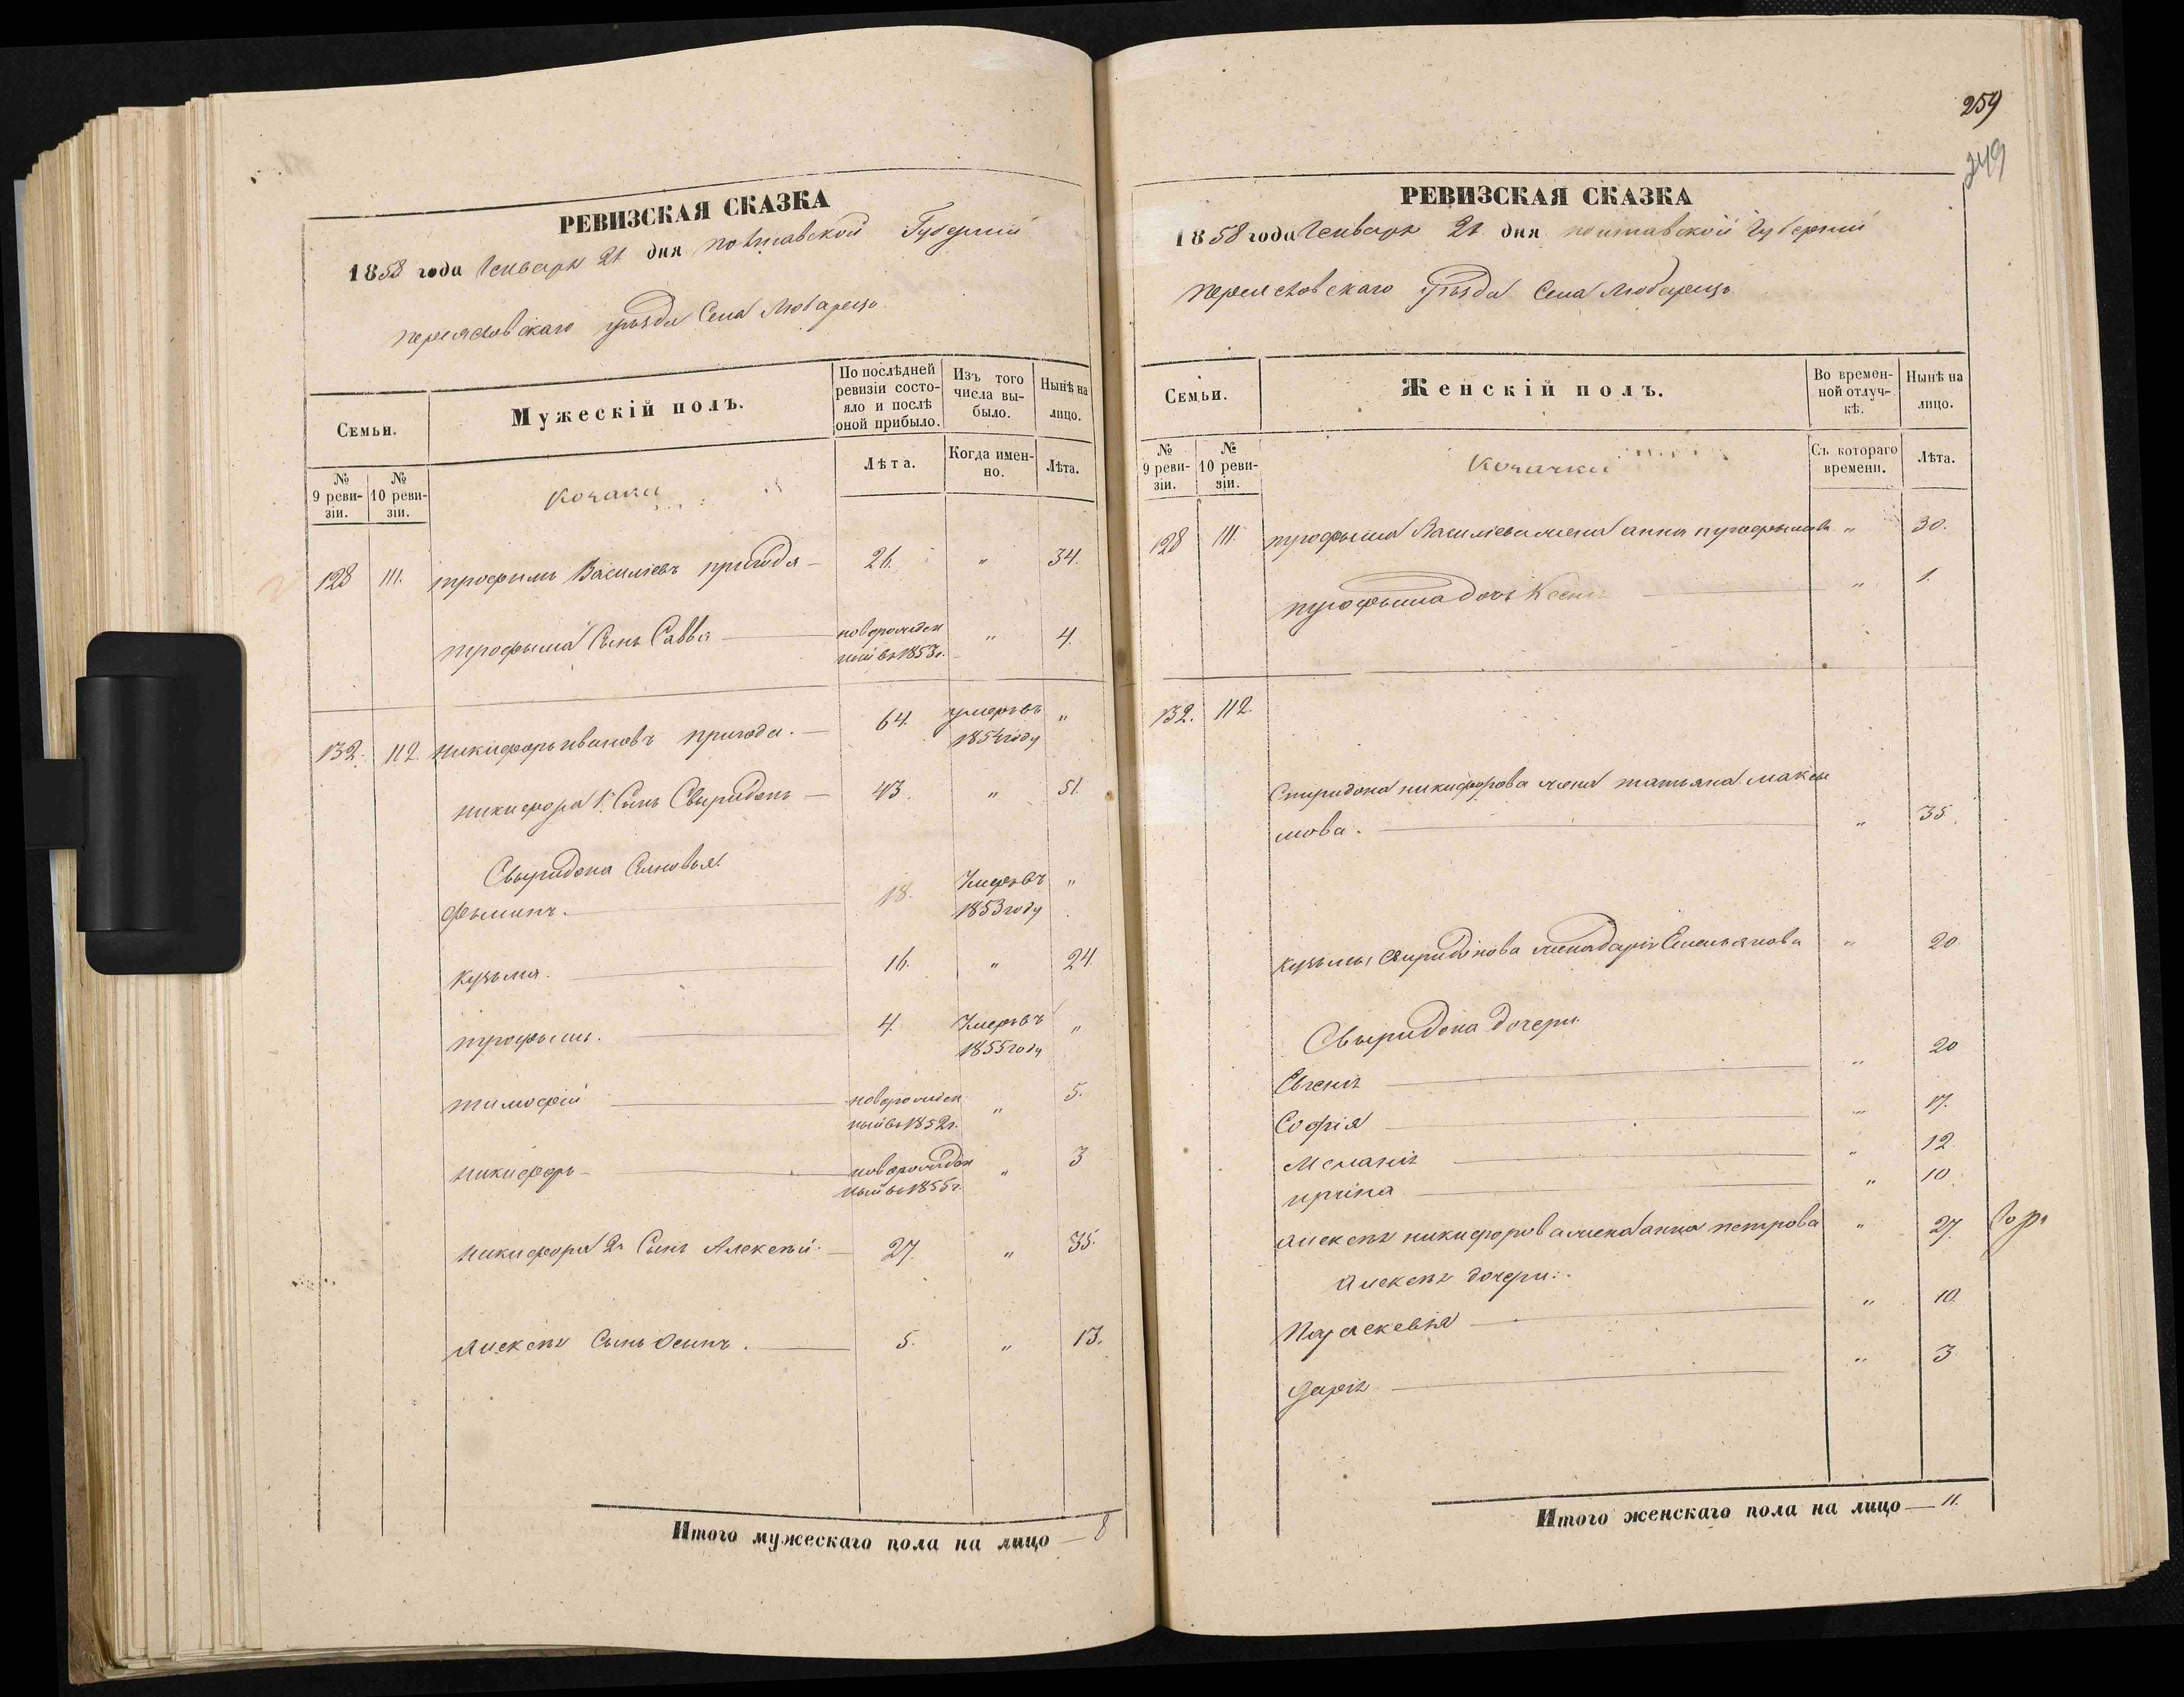 РЕВИЗСКАЯ СКАЗКА
1858 года Генваря 21 дня полтавской Губерніи
переясловскаго уѣзда Села Любарецъ
Семьи.
Мужескій полъ.
По послѣдней ревизіи состояло и послѣ оной прибыло.
Изъ того числа выбыло.
Нынѣ на лицо.
№ 9 ревизіи.
№ 10 ревизіи.
козаки
Лѣта.
Когда именно.
Лѣта.
128 111. трофымъ Василіевъ пригода — 26. " 34.
трофыма Сынъ Савва — новорожден
ный въ 1853г. " 4.
132. 112. никифоръ ивановъ пригода. — 64. умеръ въ
1854 году "
никифора 1й Сынъ Свыридонъ — 43. " 51.
Свыридона Сыновья:
Фылипъ. — 18. Умеръ въ
1853 году "
Кузьма. — 16. " 24.
трофымъ. — 4. Умеръ въ
1855 году "
тимофій — новорожден
ный въ 1852г. " 5.
никифоръ — новорожден
ный въ 1855г. " 3
никифора 2й Сынъ Алексѣй. — 27. " 35.
Алексѣя Сынъ Осипъ. — 5. " 13.
Итого мужескаго пола на лицо — 8
259
249
РЕВИЗСКАЯ СКАЗКА
1858 года Генваря 21 дня полтавской Губерніи
переясловскаго уѣзда Села Любарецъ
Семьи.
Женскій полъ.
Во временной отлучкѣ.
Нынѣ на лицо.
№ 9 ревизіи.
№ 10 ревизіи.
козачки
Съ котораго времени.
Лѣта.
128 111. трофыма Василіева жена анна " 30.
трофыма дочь Ксенія — " 1.
132. 112.
Спиридона никифорова жена татьяна макси
мова. — " 35.
кузьмы свиридонова жена дарія Емельянова " 20
Свыридона дочери.
Евгенія — " 20
Софія — " 17.
Меланія — " 12
ирина — " 10.
Алексѣя никифорова жена анна петрова " 27.
Алексѣя дочери:
Параскевія — " 10.
Дарія — " 3
Итого женскаго пола на лицо — 11.